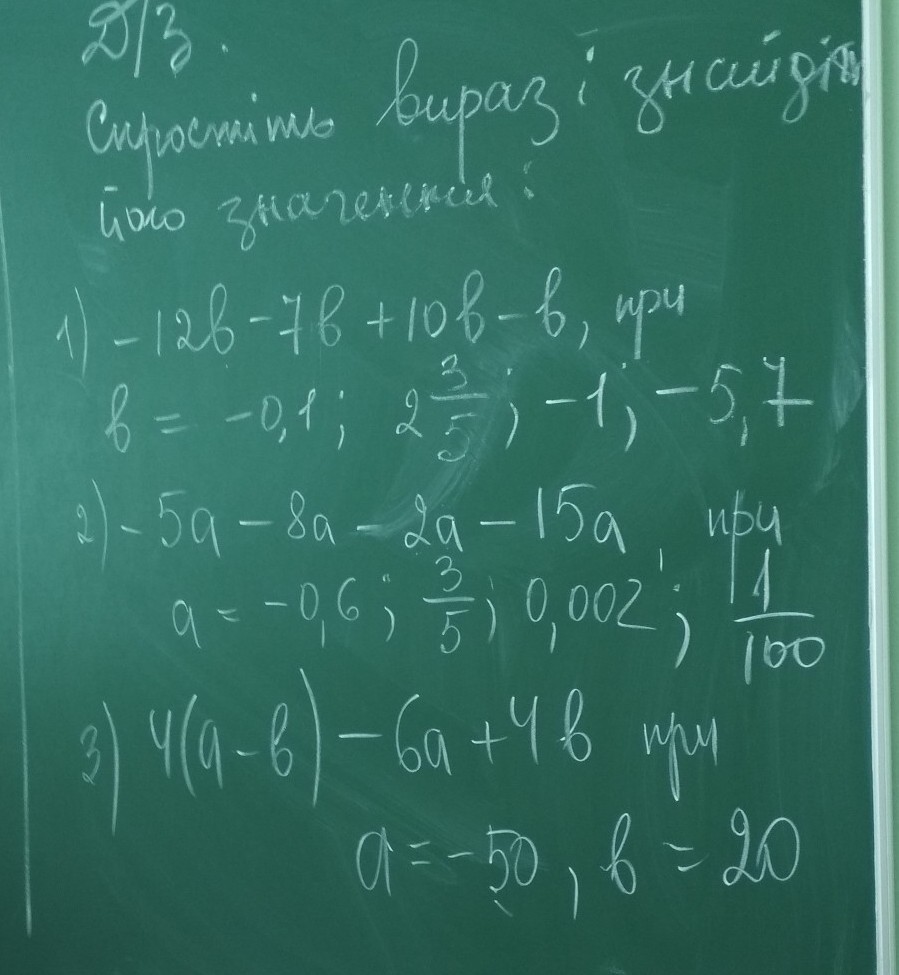 Д/З.
Спростіть вираз і знайдіть
його значення:
1) -12в -7в +10в - в, при
в = -0,1; 2 3/5; -1; -5,7
2) -5а - 8а - 2а - 15а, при
а = -0,6; 3/5; 0,002; 1/100
3) 4(а - в) - 6а + 4в при
а = -50, в = 20